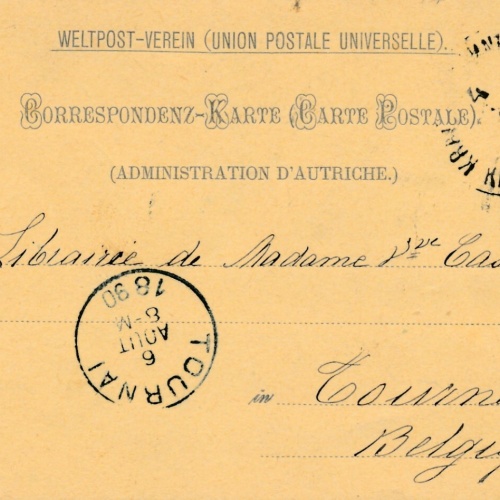 WELTPOST-VEREIN (UNION POSTALE UNIVERSELLE).
CORRESPONDENZ-KARTE (CARTE POSTALE).
(ADMINISTRATION D'AUTRICHE.)
Librairie de Madame Vve
in
TOURNAI
6
AOUT
8-M
1890